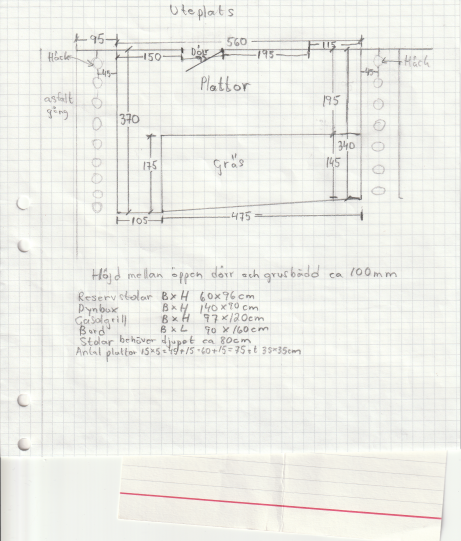 Uteplats
95
560
115
150
Dörr
195
Häck
Häck
45
45
Plattor
asfalt
gång
195
370
340
175
Gräs
145
105
475
Höjd mellan öppen dörr och grusbädd ca 100mm
Reservstolar BxH 60x96cm
Dynbox BxH 140x90cm
Gasolgrill BxH 97x120cm
Bord BxL 90x160cm
Stolar behöver djupet ca 80cm
Antal plattor 15x5= +15=60+15=75st 35=35cm